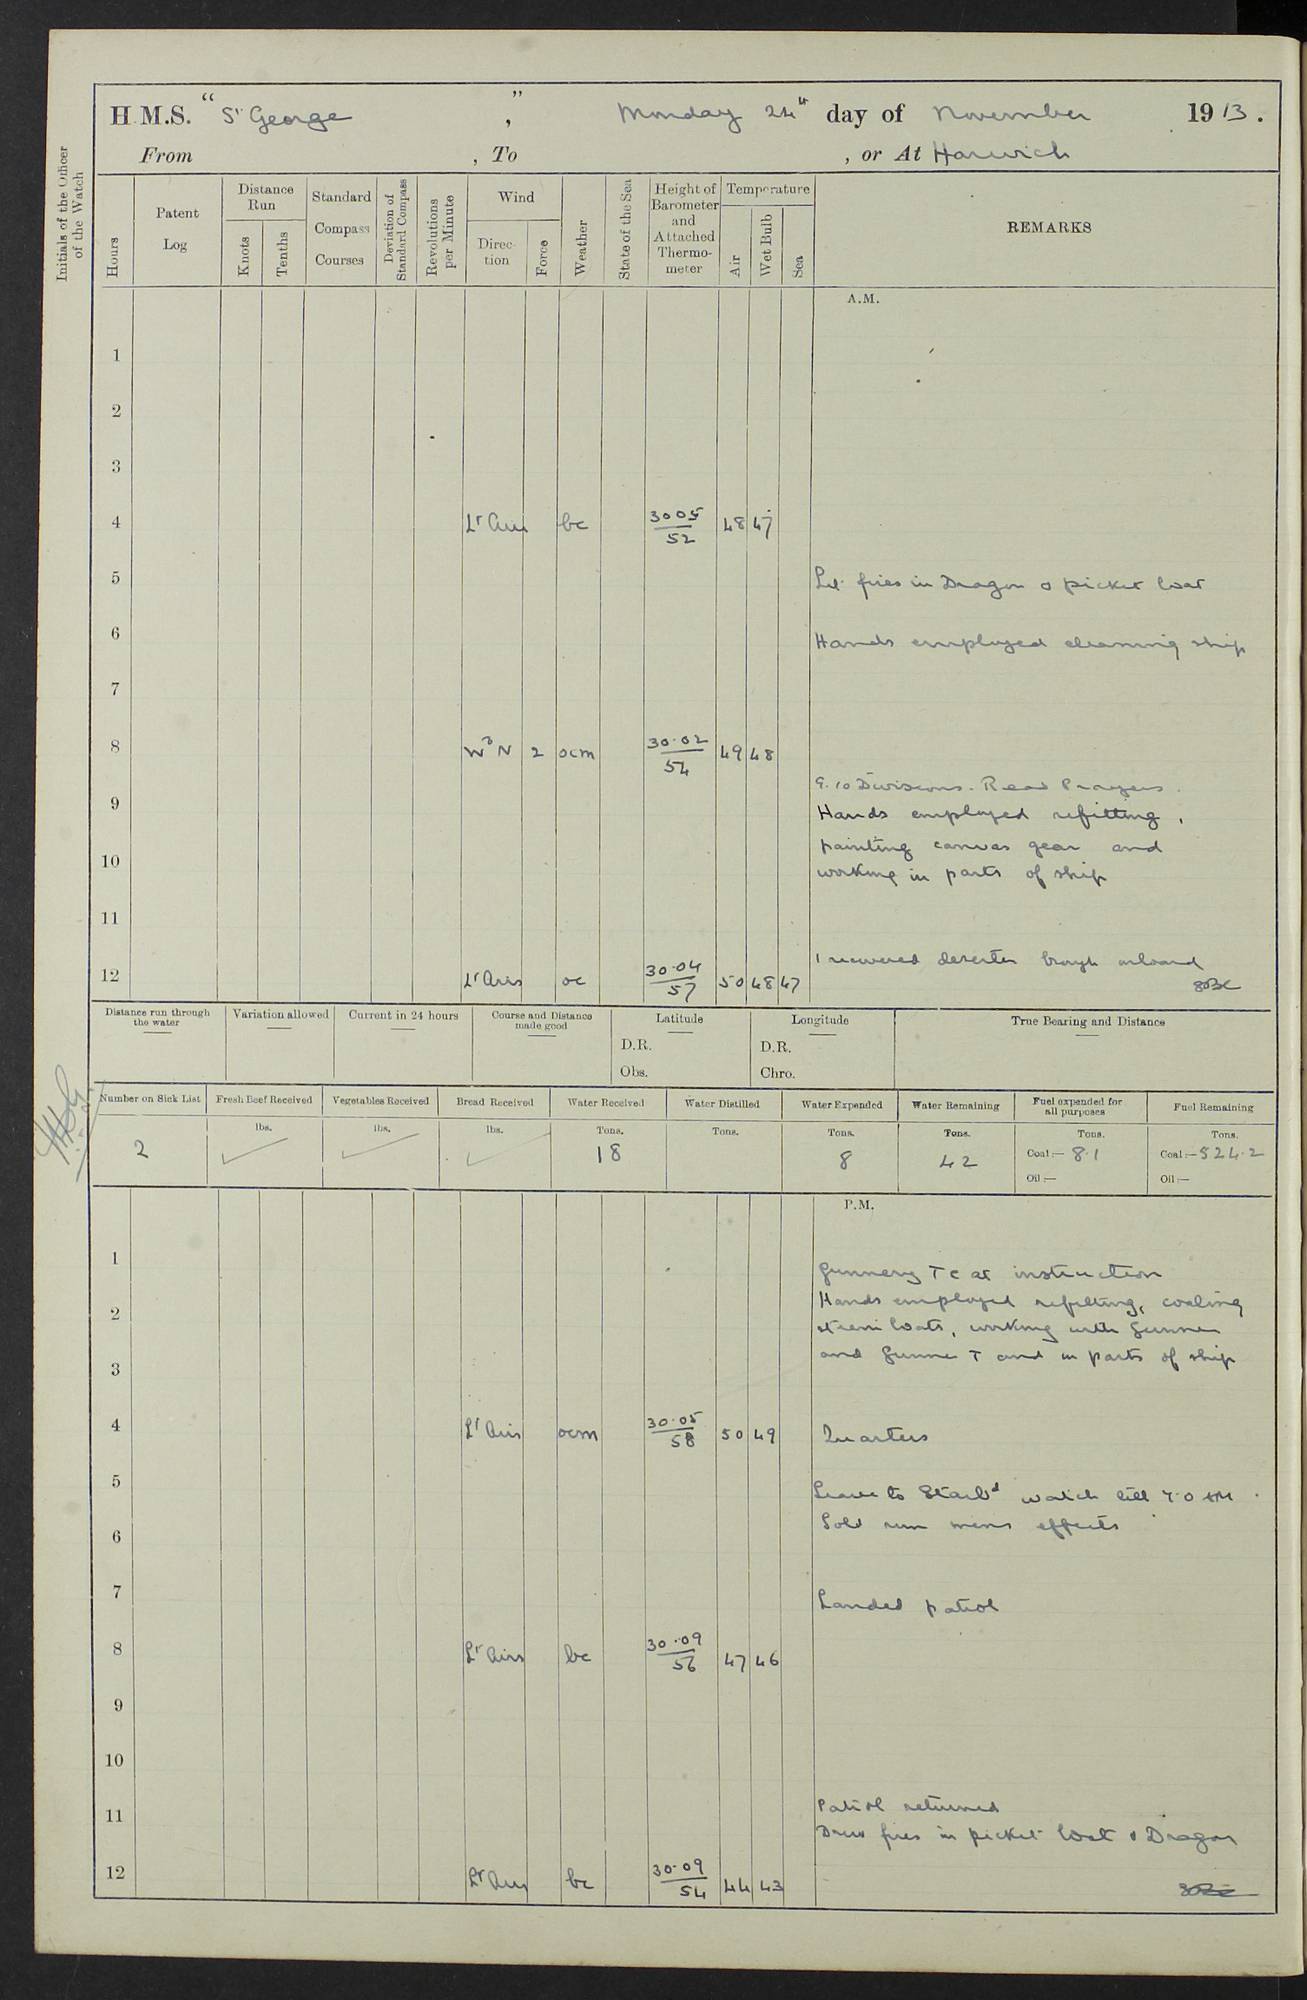 H.M.S. "St George", Monday 24th day of November 1913.
From , To , or At Harwich
Initials of the Officer of the Watch
Hours
Patent Log
Distance Run
Knots
Tenths
Standard Compass Courses
Deviation of Standard Compass
Revolutions per Minute
Wind
Direction
Force
Weather
State of the Sea
Height of Barometer and Attached Thermometer
Temperature
Air
Wet Bulb
Sea
REMARKS
A.M.
1
2
3
4 Lt Airs bc 30 05 / 52 48 47
5 Lit fires in Dragon & picket boat
6 Hands employed cleaning ship
7
8 WbN 2 ocm 30.02 / 54 49 48
9.10 Divisions. Read Prayers.
9 Hands employed refitting,
10 painting canvas gear and
working in parts of ship
11
1 recovered deserter brough onboard
12 Lt Airs oc 30.04 / 57 50 48 47
Distance run through the water
Variation allowed
Current in 24 hours
Course and Distance made good
Latitude
D.R.
Obs.
Longitude
D.R.
Chro.
True Bearing and Distance
Number on Sick List
Fresh Beef Received
Vegetables Received
Bread Received
Water Received
Water Distilled
Water Expended
Water Remaining
Fuel expended for all purposes
Fuel Remaining
lbs. lbs. lbs. Tons. Tons. Tons. Tons. Tons. Tons.
2 ✓ ✓ ✓ 18 8 42 Coal:— 8.1 Coal:— 524.2
Oil:— Oil:—
P.M.
1
Gunnery TC at instruction
Hands employed refitting, coaling
2 steam boats, working with Gunner
and Gunner T and in parts of ship
3
4 Lt Airs ocm 30.05 / 58 50 49 Quarters
5 Leave to Starbd watch till 7.0 AM
Sold run mens effects
6
7 Landed patrol
8 Lt Airs bc 30.09 / 56 47 46
9
10
11 Patrol returned
Drew fires in picket boat & Dragon
12 Lt Airs bc 30.09 / 54 44 43